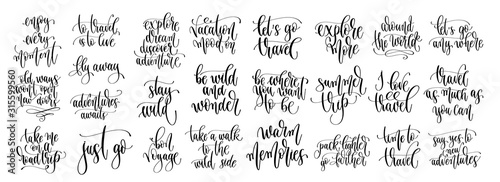 enjoy
every
moment
to travel
is to live
explore
dream
discover
adventure
vacation
mood on
let's go
travel
explore
more
around
the world
let's go
any where
old ways
won't open
new doors
fly away
adventures
awaits
stay
wild
be wild
and
wonder
be where
you want
to be
summer
trip
I love
travel
travel
as much as
you can
take me
on a
road trip
just go
bon
voyage
take a walk
to the
wild side
warm
memories
pack lighter
go farther
time to
travel
say yes to
new
adventures
Adobe Stock | #315599560